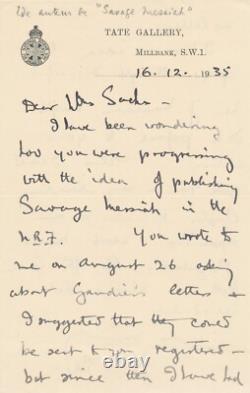 We auteur be "Savage Messiah"
TATE GALLERY,
MILLBANK, S.W.1.
16.12.1935
Dear Mrs
I have been wondering
how you were progressing
with the idea of publishing
Savage Messiah in the
N.R.F. You wrote to
me on August 26 asking
about Gaudier's letters &
I suggested that they could
be sent to you registered –
but since then I have had
© sanders.com